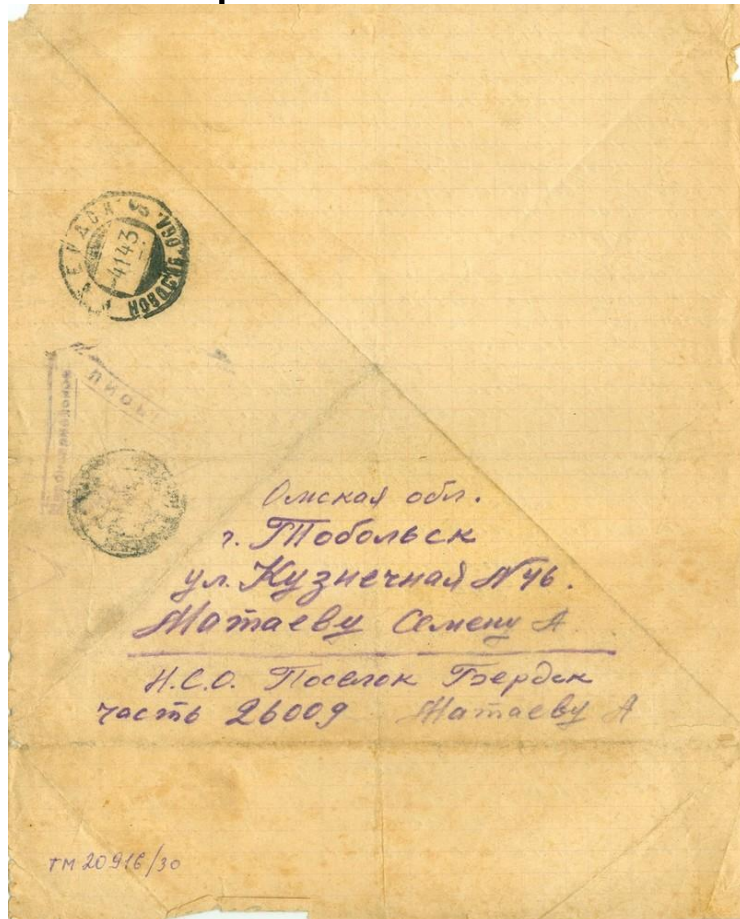 НОВОСИБ. ОБЛ.
4143
ПИСЬМО
Омская обл.
г. Тобольск
ул. Кузнечная N 46.
Матаеву Семену А
Н.С.О. Поселок Бердск
часть 26009 Матаеву А
ТМ 20916/30